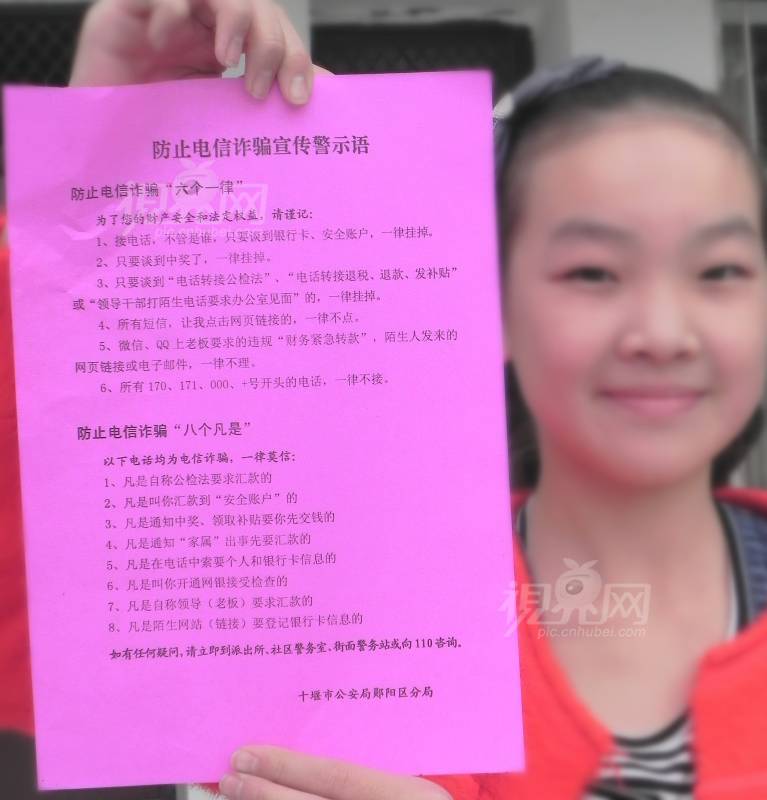 防止电信诈骗宣传警示语
防止电信诈骗“六个一律”
为了您的财产安全和法定权益，请谨记：
1、接电话，不管是谁，只要谈到银行卡、安全账户，一律挂掉。
2、只要谈到中奖了，一律挂掉。
3、只要谈到“电话转接公检法”、“电话转接退税、退款、发补贴”
或“领导干部打陌生电话要求办公室见面”的，一律挂掉。
4、所有短信，让我点击网页链接的，一律不点。
5、微信、QQ上老板要求的违规“财务紧急转款”，陌生人发来的
网页链接或电子邮件，一律不理。
6、所有170、171、000、+号开头的电话，一律不接。
防止电信诈骗“八个凡是”
以下电话均为电信诈骗，一律莫信：
1、凡是自称公检法要求汇款的
2、凡是叫你汇款到“安全账户”的
3、凡是通知中奖、领取补贴要你先交钱的
4、凡是通知“家属”出事先要汇款的
5、凡是在电话中索要个人和银行卡信息的
6、凡是叫你开通网银接受检查的
7、凡是自称领导（老板）要求汇款的
8、凡是陌生网站（链接）要登记银行卡信息的
如有任何疑问，请立即到派出所、社区警务室、街面警务站或向110咨询。
十堰市公安局郧阳区分局
視界网
pic.cnhubei.com
視界网
pic.cnhubei.com